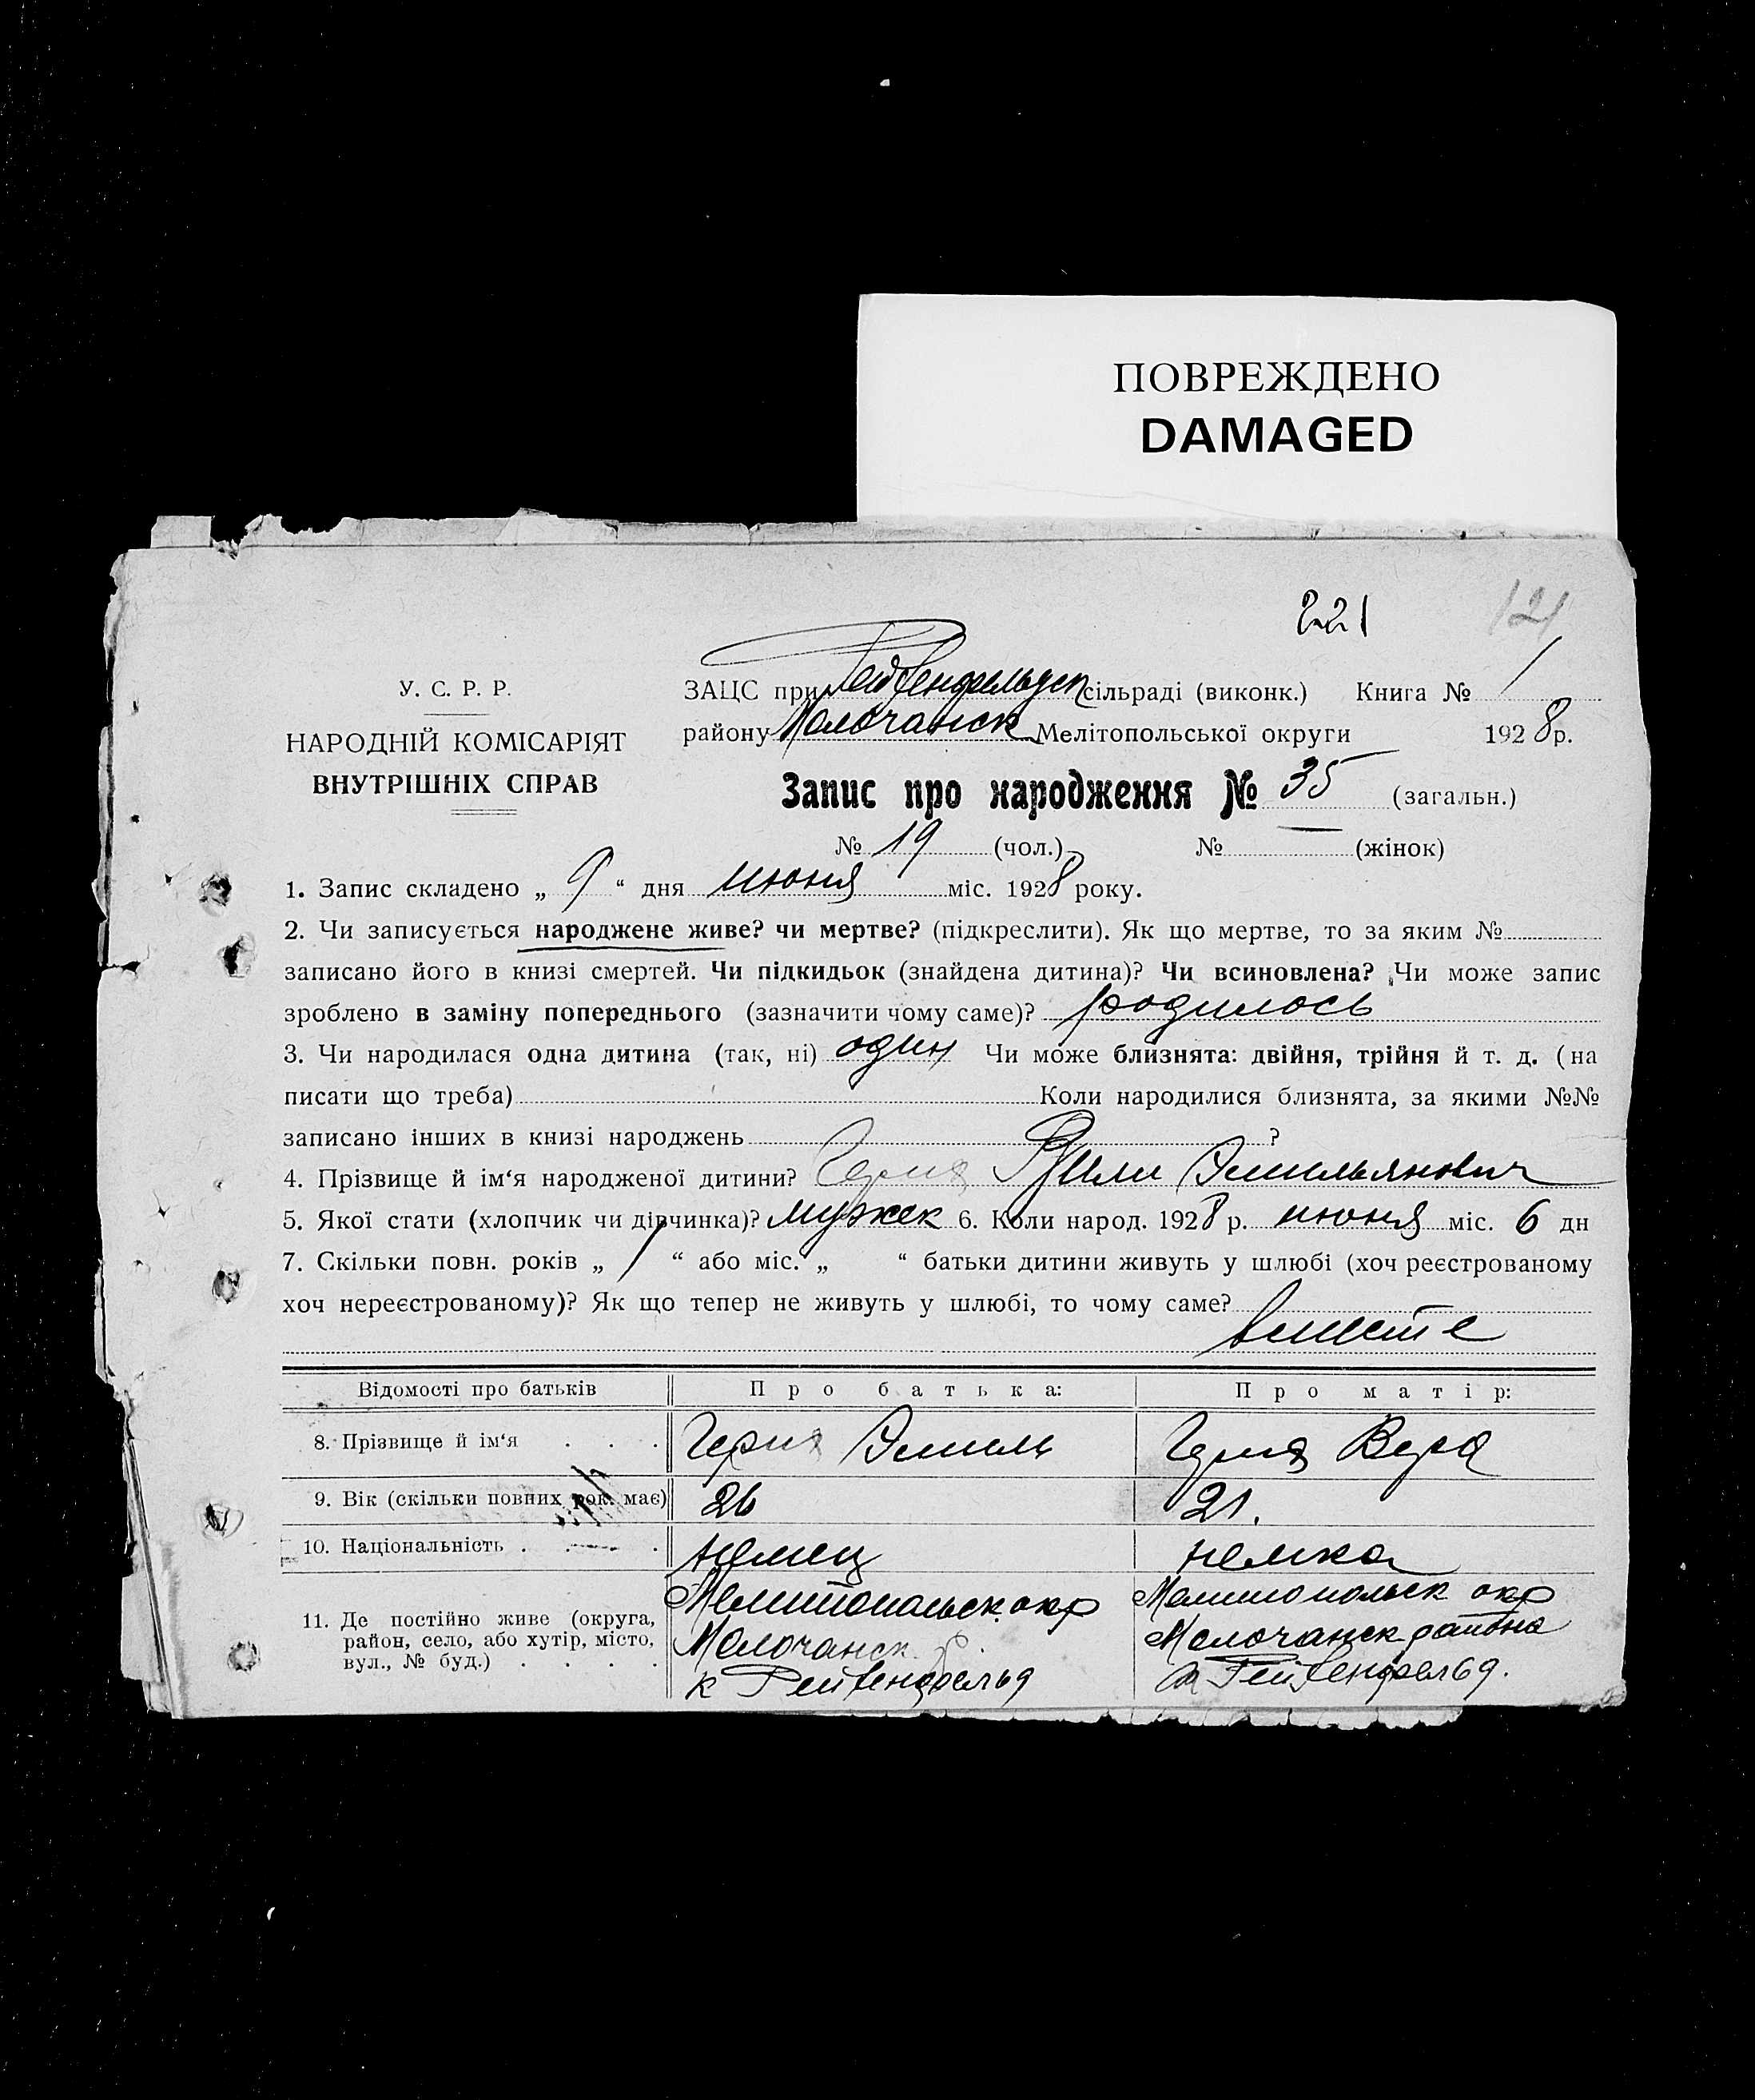 ПОВРЕЖДЕНО
DAMAGED
221
121
У. С. Р. Р.
НАРОДНІЙ КОМІСАРІЯТ
ВНУТРІШНІХ СПРАВ
ЗАЦС при Рейхенфельдск сільраді (виконк.) Книга № 1
району Молочанск Мелітопольської округи 1928 р.
Запис про народження № 35 (загальн.)
№ 19 (чол.) № (жінок)
1. Запис складено „ 9 “ дня июня міс. 1928 року.
2. Чи записується народжене живе? чи мертве? (підкреслити). Як що мертве, то за яким №
записано його в книзі смертей. Чи підкидьок (знайдена дитина)? Чи всиновлена? Чи може запис
зроблено в заміну попереднього (зазначити чому саме)? родилось
3. Чи народилася одна дитина (так, ні) один Чи може близнята: двійня, трійня й т. д. (на
писати що треба) Коли народилися близнята, за якими №№
записано інших в книзі народжень ?
4. Прізвище й ім‘я народженої дитини? Вили Эмильянович
5. Якої стати (хлопчик чи дівчинка)? мужск 6. Коли народ. 1928 р. июня міс. 6 дн
7. Скільки повн. років „ 1 “ або міс. „ “ батьки дитини живуть у шлюбі (хоч реєстрованому
хоч нереєстрованому)? Як що тепер не живуть у шлюбі, то чому саме?
вместе
Відомості про батьків Про батька: Про матір:
8. Прізвище й ім‘я Эмиль Вера
9. Вік (скільки повних рок. має) 26 21.
10. Національність немец немка
11. Де постійно живе (округа, район, село, або хутір, місто, вул., № буд.)
Мелитопольск окр Мелитопольск окр
Молочанск р. Молочанск района
к Рейхенфельд к Рейхенфельд.